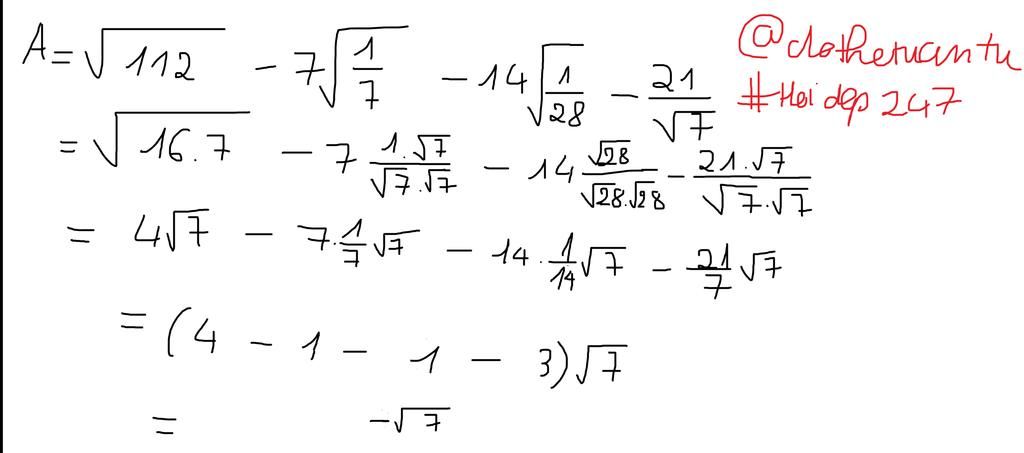 A = √112 − 7√(1/7) − 14√(1/28) − 21/√7
= √(16.7) − 7 (1.√7)/(√7.√7) − 14 √28/(√28.√28) − (21.√7)/(√7.√7)
= 4√7 − 7.(1/7)√7 − 14.(1/14)√7 − (21/7)√7
= (4 − 1 − 1 − 3)√7
= −√7
#Hoidap247